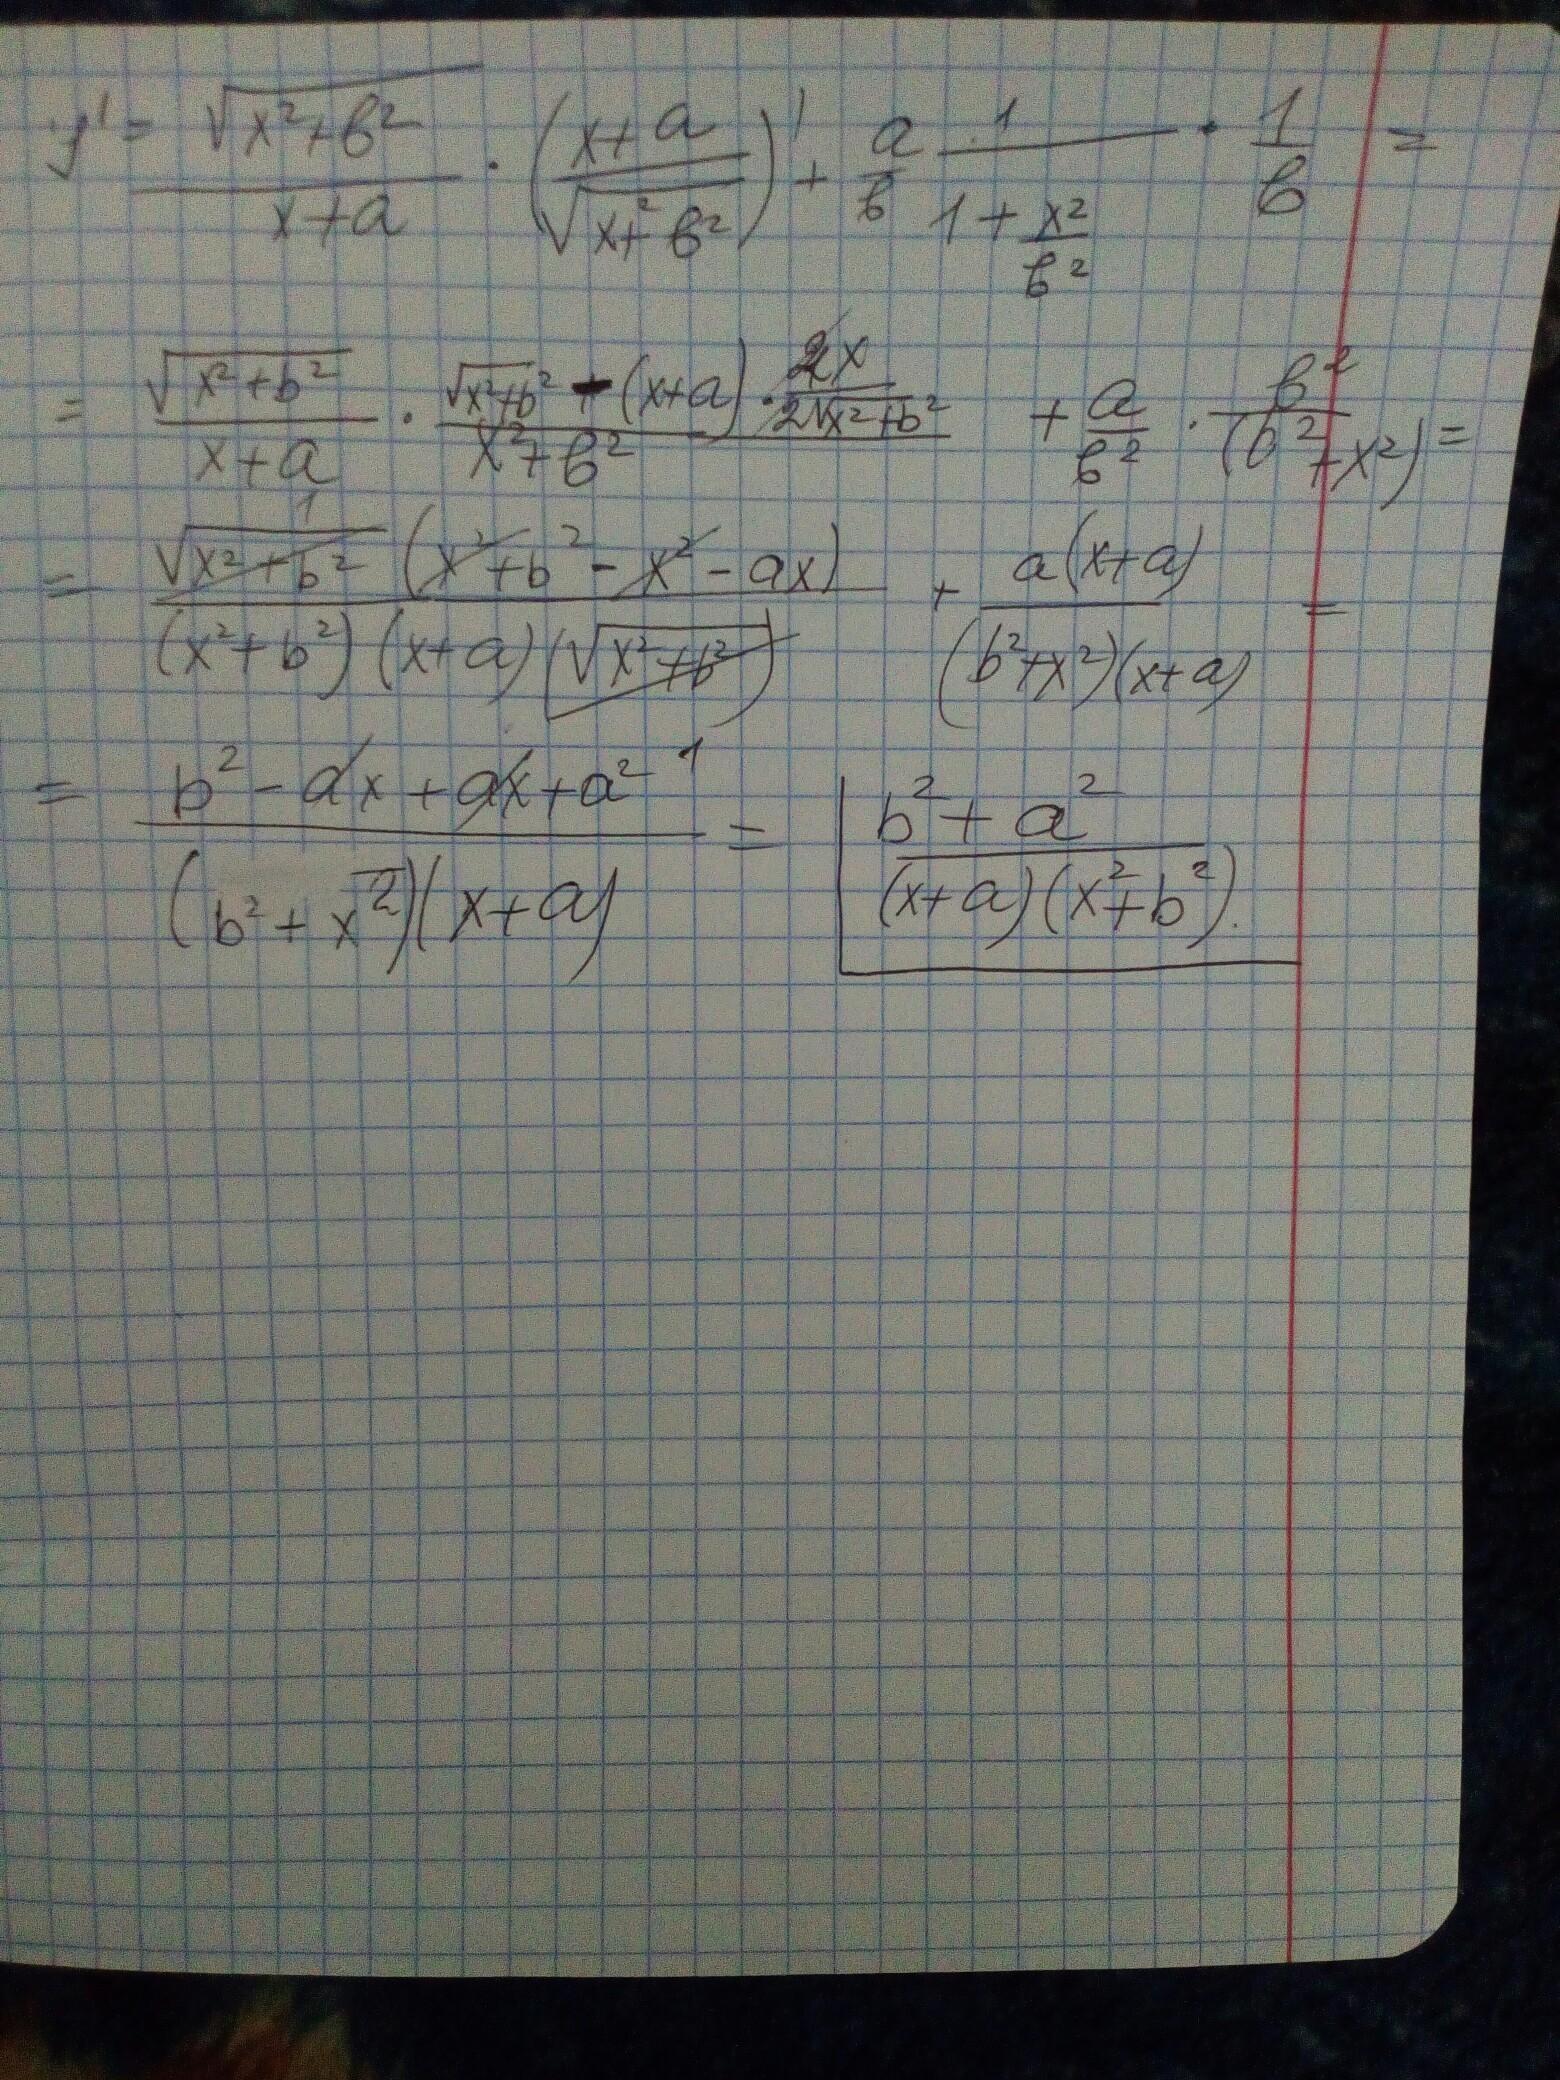 y' = √(x²+b²)/(x+a) · ((x+a)/√(x²+b²))' + a/b 1/(1+x²/b²) · 1/b =
= √(x²+b²)/(x+a) · (√(x²+b²) - (x+a) · 2x/(2√(x²+b²)))/(x²+b²) + a/b² · b²/(b²+x²) =
= 1 √(x²+b²) (x²+b²-x²-ax)/((x²+b²)(x+a)(√(x²+b²))) + a(x+a)/((b²+x²)(x+a)) =
= (b²-ax+ax+a² 1)/((b²+x²)(x+a)) = (b²+a²)/((x+a)(x²+b²)).